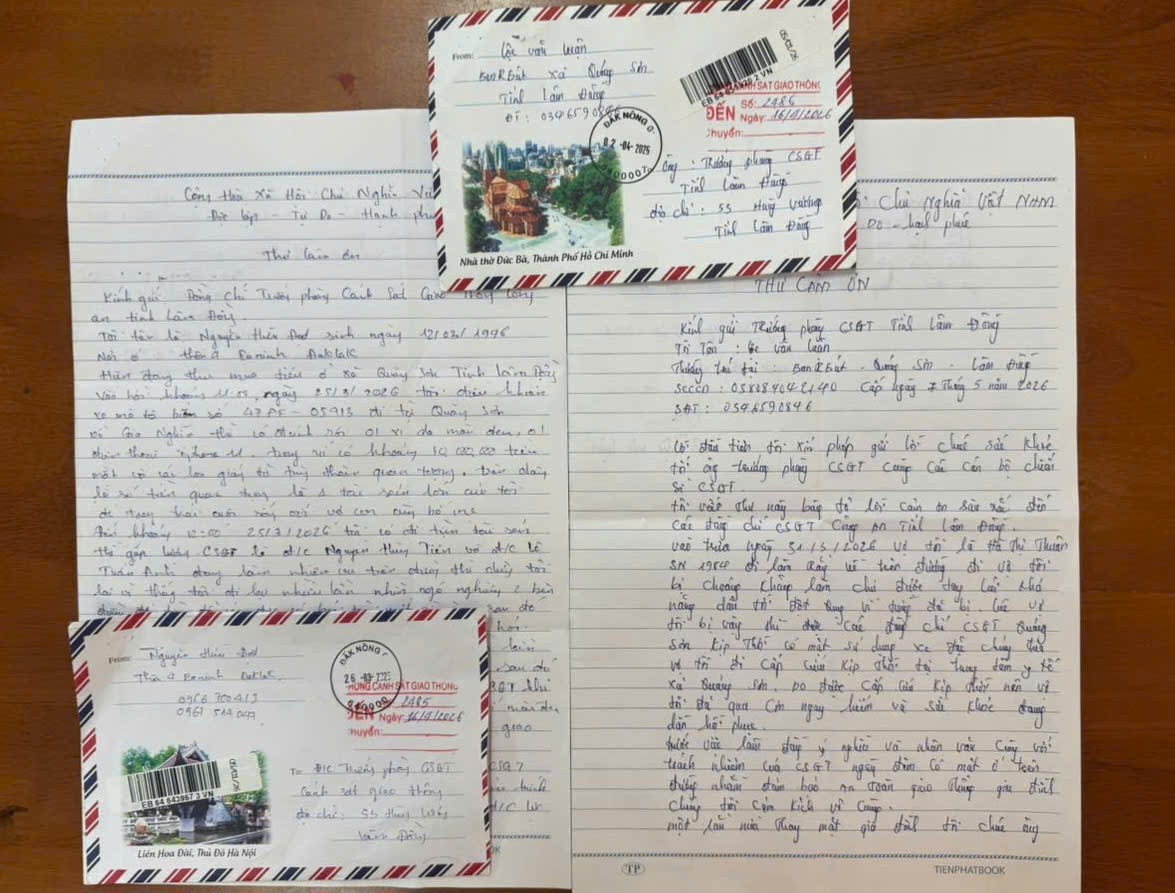 From: Lộc văn luận
BonRBút xã Quảng Sơn
Tỉnh Lâm Đồng
ĐT: 0346590846
ĐĂK NÔNG
02-04-2025
EB 64 643976 2 VN
05/01/26
CẢNH SÁT GIAO THÔNG
ĐẾN Số: 2486
Ngày: 16/4/2026
Chuyển:
Ông: Trưởng phòng CSGT
Tỉnh Lâm Đồng
địa chỉ: 55 Hùng Vương
Tỉnh Lâm Đồng
Nhà thờ Đức Bà, Thành Phố Hồ Chí Minh
Cộng Hòa Xã Hội Chủ Nghĩa Việ
Độc lập - Tự Do - Hạnh phú
Thư Cảm ơn
Kính gửi Đồng Chí Trưởng phòng Cảnh Sát Giao Thông Công
an tỉnh Lâm Đồng.
Tôi tên là Nguyễn Hữu Đạt sinh ngày 12/02/1996
Nơi ở thôn 9 Eaninh Daklak
Hiện đang thu mua tiêu ở xã Quảng Sơn Tỉnh Lâm Đồng
Vào hồi khoảng ngày 25/3/2026 tôi điều khiển
xe mô tô biển số 47AF - 05913 đi từ Quảng Sơn
về Gia Nghĩa thì có đánh rơi 01 ví da màu đen, 01
điện thoại iphone 11, trong ví có khoảng 10,000,000 tiền
mặt và các loại giấy tờ tùy thân quan trọng. trên đây
là số tiền quan trọng là tài sản lớn của tôi
để trang trải cuộc sống với vợ con cùng bố mẹ
Đến khoảng 12:00 25/3/2026 tôi có đi tìm tài sản
thì gặp CSGT là đ/c Nguyễn Thủy Tiên và đ/c Lê
Tuấn Anh đang làm nhiệm vụ trên đường thì thấy tôi
lại vì thấy tôi đi lại nhiều lần nhìn ngó nghiêng 2 bên
sau đó
GT khu
giao
CSGT
From: Nguyễn Hữu Đạt
Thôn 9 Eaninh Daklak
0966 700413
0961 514
ĐĂK NÔNG
26 -03-
PHÒNG CẢNH SÁT GIAO THÔNG
ĐẾN 2485
Ngày: 16/4/2026
Chuyển:
EB 64 643967 3 VN
05/01/26
To Đ/C Trưởng phòng CSGT
Cảnh sát giao thông
địa chỉ: 55 Hùng Vương
Lâm Đồng
Liên Hoa Đài, Thủ Đô Hà Nội
Chủ Nghĩa Việt NAM
Do - hạnh phúc
THƯ CẢM ƠN
Kính gửi Trưởng phòng CSGT Tỉnh Lâm Đồng
Tôi Tên: Lộc văn luận
Thường trú tại: BonRBút - Quảng Sơn - Lâm Đồng
SCCCD: 038084042140 Cấp ngày 7 Tháng 5 năm 2026
SĐT: 0346590846
Lời đầu tiên tôi xin phép gửi lời chúc sức khỏe
tới ông trưởng phòng CSGT cùng các cán bộ chiến
sĩ CSGT.
tôi viết thư này bày tỏ lời cảm ơn sâu sắc đến
các đồng chí CSGT Công an Tỉnh Lâm Đồng.
vào trưa ngày 31/3/2026 vợ tôi là Hồ Thị Thuân
SN 1984 đi làm rẫy về trên đường đi về tôi
bị choáng không làm chủ được tay lái khả
năng dẫn tới đột quỵ vì đường đó bị lúc vợ
tôi bị vậy thì được các đồng chí CSGT Quảng
Sơn kịp thời có mặt sử dụng xe đặc chủng đưa
vợ tôi đi cấp cứu kịp thời tại trung tâm y tế
xã Quảng Sơn. Do được cấp cứu kịp thời nên vợ
tôi đã qua cơn nguy hiểm và sức khỏe đang
dần hồi phục.
trước việc làm đầy ý nghĩa và nhân văn cùng với
trách nhiệm của CSGT ngày đêm có mặt ở trên
đường nhằm đảm bảo an toàn giao thông gia đình
chúng tôi cảm kích vô cùng.
một lần nữa thay mặt gia đình tôi chúc ông
TP
TIENPHATBOOK